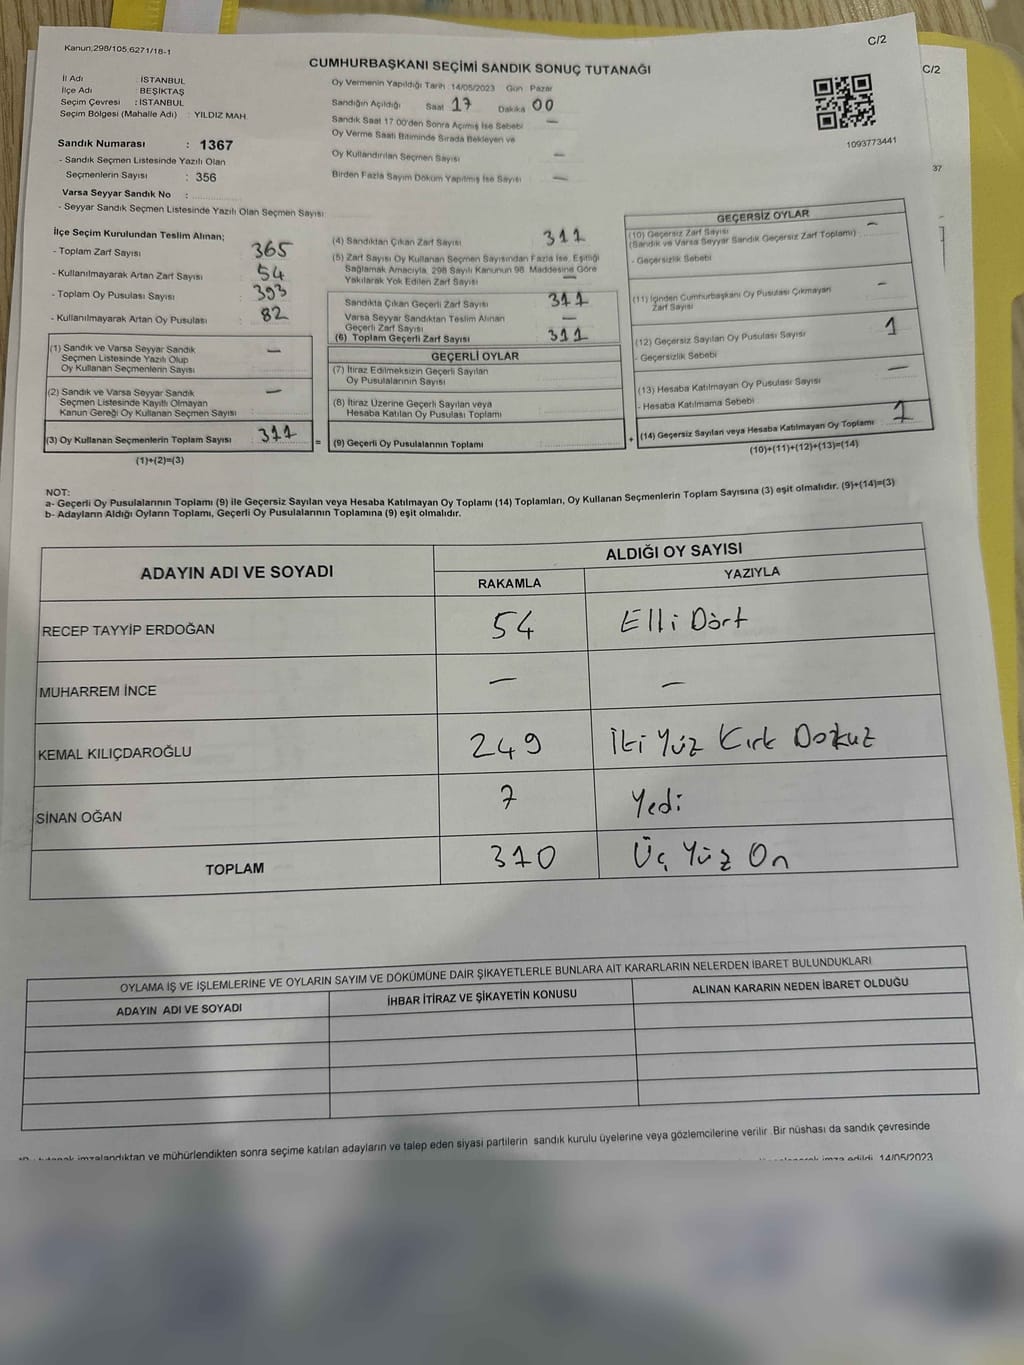 Kanun;298/105,6271/18-1
C/2
C/2
CUMHURBAŞKANI SEÇİMİ SANDIK SONUÇ TUTANAĞI
İl Adı : İSTANBUL
İlçe Adı : BEŞİKTAŞ
Seçim Çevresi : İSTANBUL
Seçim Bölgesi (Mahalle Adı) : YILDIZ MAH.
Sandık Numarası : 1367
- Sandık Seçmen Listesinde Yazılı Olan
Seçmenlerin Sayısı : 356
Varsa Seyyar Sandık No :
- Seyyar Sandık Seçmen Listesinde Yazılı Olan Seçmen Sayısı:
Oy Vermenin Yapıldığı Tarih : 14/05/2023 Gün : Pazar
Sandığın Açıldığı Saat 17 Dakika 00
Sandık Saat 17.00'den Sonra Açımış İse Sebebi —
Oy Verme Saati Bitiminde Sırada Bekleyen ve
Oy Kullandırılan Seçmen Sayısı —
Birden Fazla Sayım Döküm Yapılmış İse Sayısı —
1093773441
37
İlçe Seçim Kurulundan Teslim Alınan;
- Toplam Zarf Sayısı 365
- Kullanılmayarak Artan Zarf Sayısı : 54
- Toplam Oy Pusulası Sayısı : 393
- Kullanılmayarak Artan Oy Pusulası : 82
(1) Sandık ve Varsa Seyyar Sandık —
Seçmen Listesinde Yazılı Olup
Oy Kullanan Seçmenlerin Sayısı :
(2) Sandık ve Varsa Seyyar Sandık —
Seçmen Listesinde Kayıtlı Olmayan
Kanun Gereği Oy Kullanan Seçmen Sayısı :
(3) Oy Kullanan Seçmenlerin Toplam Sayısı : 311
(1)+(2)=(3)
(4) Sandıktan Çıkan Zarf Sayısı 311
(5) Zarf Sayısı Oy Kullanan Seçmen Sayısından Fazla İse, Eşitliği
Sağlamak Amacıyla, 298 Sayılı Kanunun 98. Maddesine Göre
Yakılarak Yok Edilen Zarf Sayısı —
Sandıkta Çıkan Geçerli Zarf Sayısı 311
Varsa Seyyar Sandıktan Teslim Alınan —
Geçerli Zarf Sayısı
(6) Toplam Geçerli Zarf Sayısı 311
=
GEÇERLİ OYLAR
(7) İtiraz Edilmeksizin Geçerli Sayılan
Oy Pusulalarının Sayısı
(8) İtiraz Üzerine Geçerli Sayılan veya
Hesaba Katılan Oy Pusulası Toplamı
(9) Geçerli Oy Pusulalarının Toplamı
+
GEÇERSİZ OYLAR
(10) Geçersiz Zarf Sayısı —
(Sandık ve Varsa Seyyar Sandık Geçersiz Zarf Toplamı) :
- Geçersizlik Sebebi
(11) İçinden Cumhurbaşkanı Oy Pusulası Çıkmayan —
Zarf Sayısı
(12) Geçersiz Sayılan Oy Pusulası Sayısı 1
- Geçersizlik Sebebi
(13) Hesaba Katılmayan Oy Pusulası Sayısı —
- Hesaba Katılmama Sebebi
(14) Geçersiz Sayılan veya Hesaba Katılmayan Oy Toplamı 1
(10)+(11)+(12)+(13)=(14)
NOT:
a- Geçerli Oy Pusulalarının Toplamı (9) ile Geçersiz Sayılan veya Hesaba Katılmayan Oy Toplamı (14) Toplamları, Oy Kullanan Seçmenlerin Toplam Sayısına (3) eşit olmalıdır. (9)+(14)=(3)
b- Adayların Aldığı Oyların Toplamı, Geçerli Oy Pusulalarının Toplamına (9) eşit olmalıdır.
ADAYIN ADI VE SOYADI
ALDIĞI OY SAYISI
RAKAMLA YAZIYLA
RECEP TAYYİP ERDOĞAN 54 Elli Dört
MUHARREM İNCE — —
KEMAL KILIÇDAROĞLU 249 İki Yüz Kırk Dokuz
SİNAN OĞAN 7 Yedi
TOPLAM 310 Üç Yüz On
OYLAMA İŞ VE İŞLEMLERİNE VE OYLARIN SAYIM VE DÖKÜMÜNE DAİR ŞİKAYETLERLE BUNLARA AİT KARARLARIN NELERDEN İBARET BULUNDUKLARI
ADAYIN ADI VE SOYADI İHBAR İTİRAZ VE ŞİKAYETİN KONUSU ALINAN KARARIN NEDEN İBARET OLDUĞU
tutanak imzalandıktan ve mühürlendikten sonra seçime katılan adayların ve talep eden siyasi partilerin sandık kurulu üyelerine veya gözlemcilerine verilir. Bir nüshası da sandık çevresinde
imza edildi. 14/05/2023